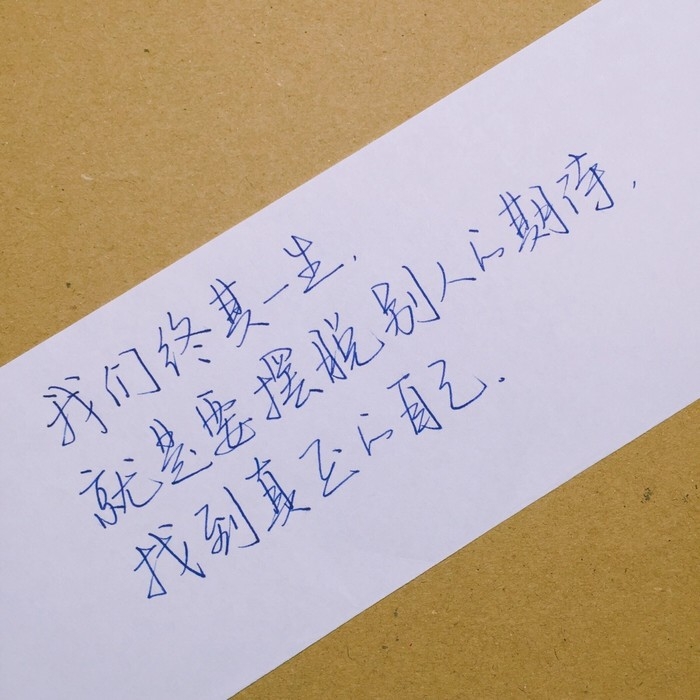 我们终其一生.
就是要摆脱别人的期待,
找到真正的自己.